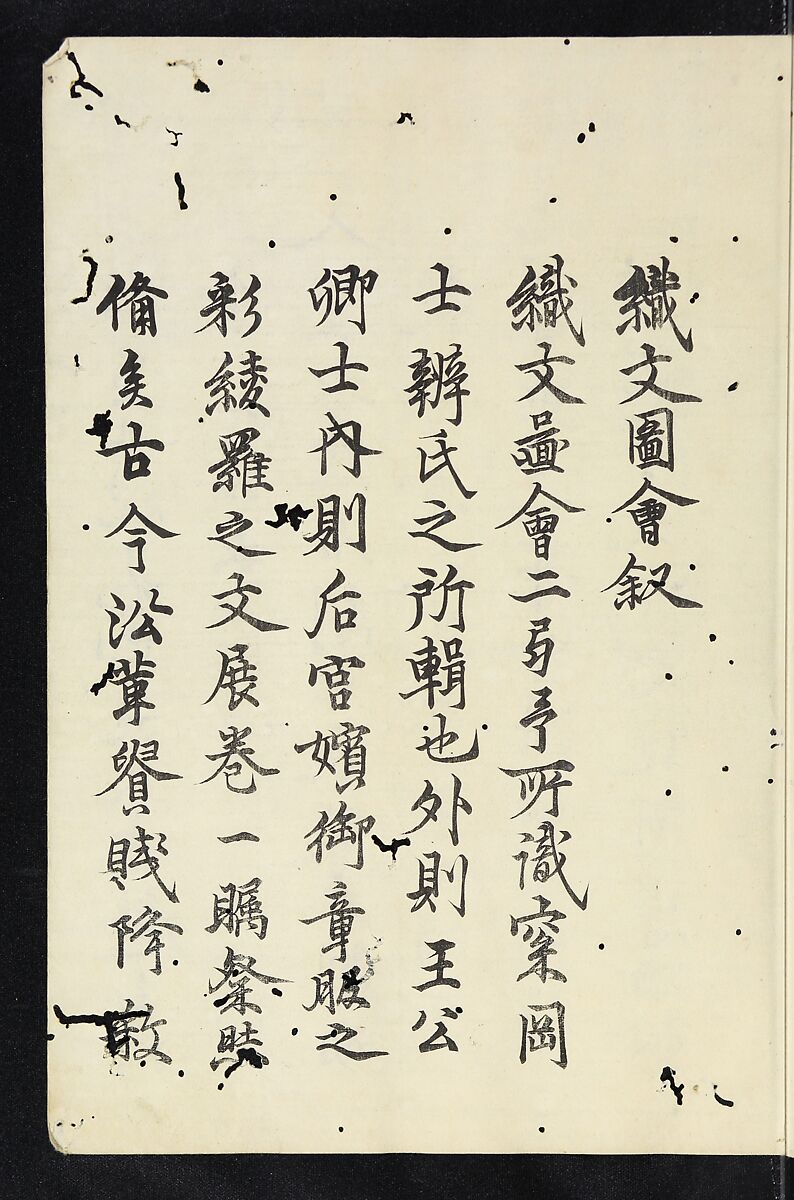 織文圖會叙
織文啚會二弓予所識岡
士辨氏之所輯也外則王公
卿士内則后宮嬪御章服之
彩綾羅之文展巻一矚粲然
備矣古今沿革貴賤降殺